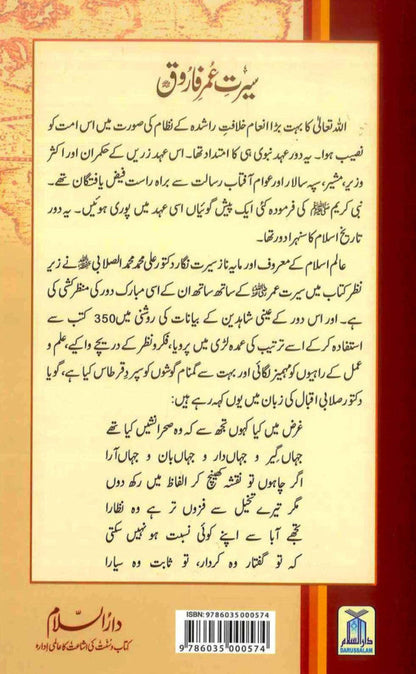 سیرتِ عمر فاروق رضی اللہ عنہ
اللہ تعالیٰ کا بہت بڑا انعام خلافتِ راشدہ کے نظام کی صورت میں اس امت کو
نصیب ہوا۔ یہ دور عہد نبوی ہی کا امتداد تھا۔ اس عہد زریں کے حکمران اور اکثر
وزیر، مشیر، سپہ سالار اور عوام آفتاب رسالت سے براہ راست فیض یافتگان تھے۔
نبی کریم ﷺ کی فرمودہ کئی ایک پیش گوئیاں اسی عہد میں پوری ہوئیں۔ یہ دور
تاریخ اسلام کا سنہرا دور تھا۔
عالم اسلام کے معروف اور مایہ ناز سیرت نگار دکتور علی محمد محمد الصلابی نے زیر
نظر کتاب میں سیرت عمر کے ساتھ ساتھ ان کے اسی مبارک دور کی منظر کشی کی
ہے۔ اور اس دور کے عینی شاہدین کے بیانات کی روشنی میں 350 کتب سے
استفادہ کر کے اسے ترتیب کی عمدہ لڑی میں پرو دیا، فکر و نظر کے دریچے وا کیے، علم و
عمل کے راہیوں کو مہمیز لگائی اور بہت سے گمنام گوشوں کو سپرد قرطاس کیا ہے، گویا
دکتور صلابی اقبال کی زبان میں یوں کہہ رہے ہیں:
غرض میں کیا کہوں تجھ سے کہ وہ صحرا نشیں کیا تھے
جہاں گیر و جہاں دار و جہاں بان و جہاں آرا
اگر چاہوں تو نقشہ کھینچ کر الفاظ میں رکھ دوں
مگر تیرے تخیل سے فزوں تر ہے وہ نظارا
تجھے آبا سے اپنے کوئی نسبت ہو نہیں سکتی
کہ تو گفتار وہ کردار، تو ثابت وہ سیارا
ISBN: 9786035000574
9 786035 000574
دار السلام
کتاب و سنت کی اشاعت کا عالمی ادارہ
دارالسلام
DARUSSALAM